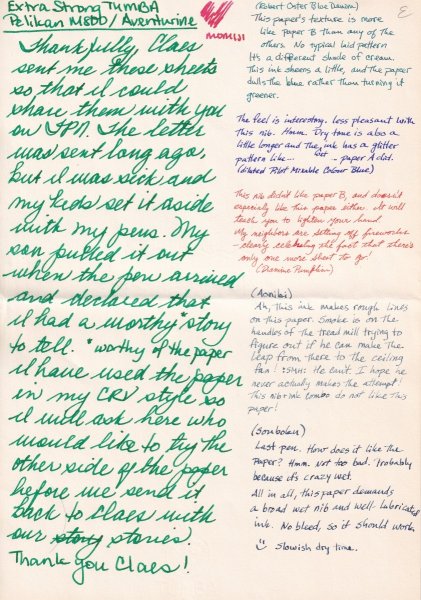 Extra Strong TUMBA
Pelikan M800 / Aventurine
MOMIJI
Thankfully, Claes
sent me these sheets
so that I could
share them with you
on FPN. The letter
was sent long ago,
but I was sick and
my kids set it aside
with my pens. My
son pulled it out
when the pen arrived
and declared that
I had a worthy* story
to tell. *worthy of the paper
I have used the paper
in my CRV style so
I will ask here who
would like to try the
other side of the paper
before we send it
back to Claes with
our story stories.
Thank you Claes!
E
(Robert Oster Blue Denim)
This paper's texture is more
like Paper B than any of the
others. No typical laid pattern
It's a different shade of cream.
This ink sheens a little, and the paper
dulls the blue rather than turning it
greener.
The feel is interesting. Less pleasant with
this nib. Hmm. Dry time is also a
little longer and the wet ink has a glitter
pattern like... paper A did.
(Diluted Pilot Mixable Colour Blue)
This nib didn't like paper B, and doesn't
especially like this paper either. It will
teach you to lighten your hand.
My neighbors are setting off fireworks
- clearly celebrating the fact that there's
only one more sheet to go!
(Diamine Pumpkin)
(Aonibi)
Ah, this ink makes rough lines
on this paper. Smoke is on the
handles of the tread mill trying to
figure out if he can make the
leap from there to the ceiling
fan! *SMH* He can't. I hope he
never actually makes the attempt!
This nib & ink combo do not like this
paper!
(Souboku)
Last pen. How does it like the
Paper? Hmm. Not too bad. Probably
because it's crazy wet.
All in all, this paper demands
a broad wet nib and well-lubricated
ink. No bleed, so it should work.
Slowish dry time.